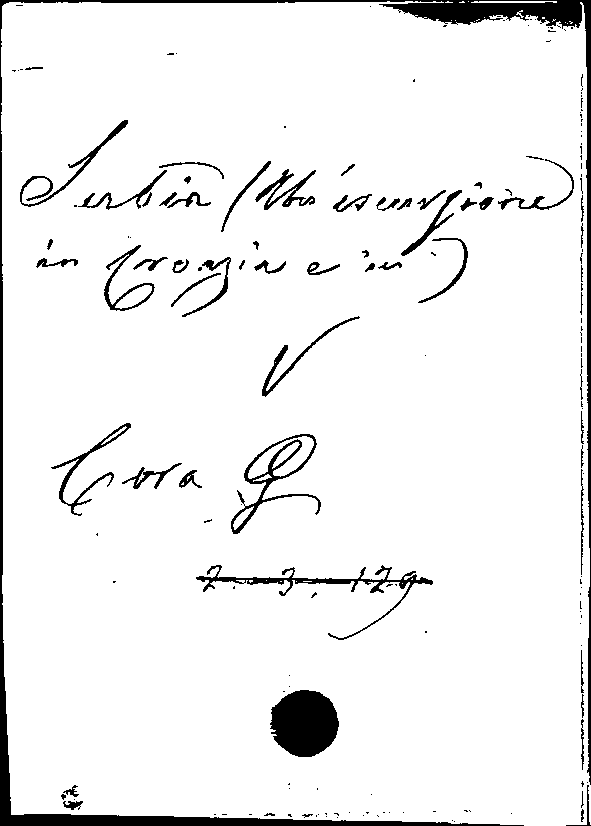 Serbia (Un' escursione
in Croazia e in)
V
Cora G
2. 3. 129